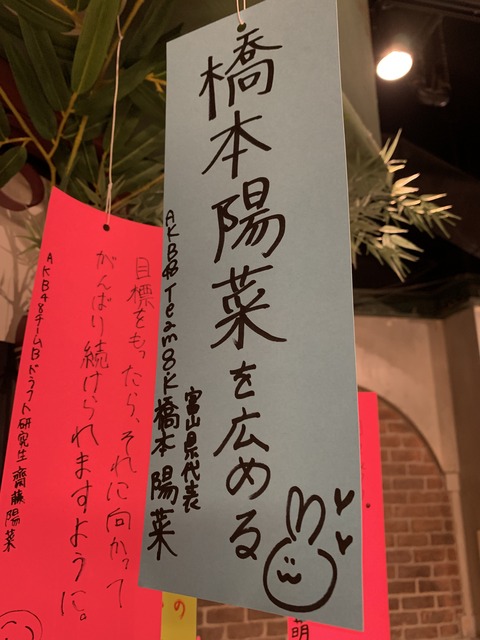 橋本陽菜を広める
富山県代表
AKB48 Team8・K 橋本 陽菜
目標をもったら、それに向かって
がんばり続けられますように。
AKB48チームBドラフト研究生 齋藤陽菜
の
明